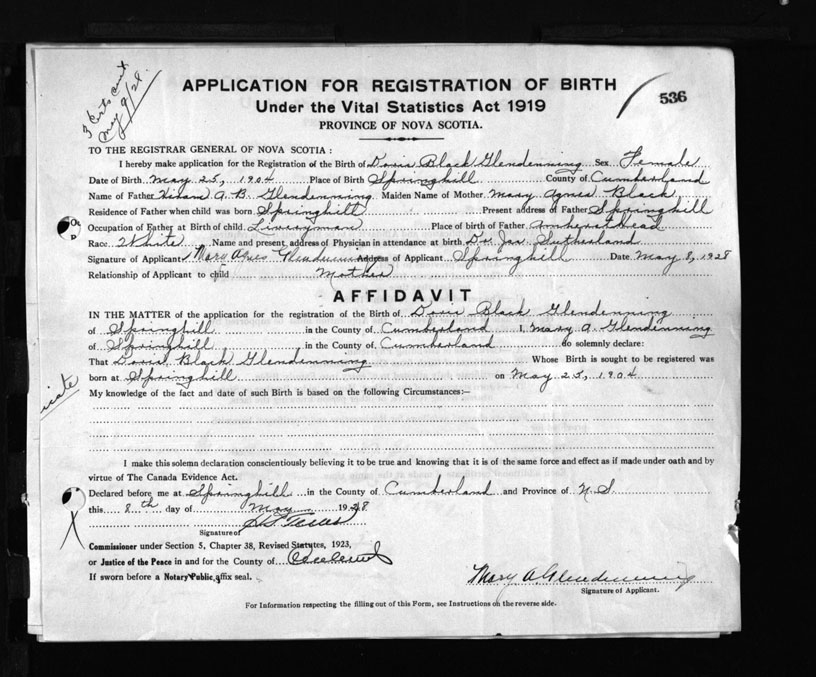 3 Certs Sent
May 9/28.
536
APPLICATION FOR REGISTRATION OF BIRTH
Under the Vital Statistics Act 1919
PROVINCE OF NOVA SCOTIA.
TO THE REGISTRAR GENERAL OF NOVA SCOTIA :
I hereby make application for the Registration of the Birth of Doris Black Glendenning Sex Female
Date of Birth May 25, 1904 Place of Birth Springhill County of Cumberland
Name of Father Hiram A. B. Glendenning Maiden Name of Mother Mary Agnes Black
Residence of Father when child was born Springhill Present address of Father Springhill
Occupation of Father at Birth of child Liveryman Place of birth of Father Amherst Head
Race White Name and present address of Physician in attendance at birth Dr. Jas. Sutherland
Signature of Applicant Mary Agnes Glendenning Address of Applicant Springhill Date May 8, 1928
Relationship of Applicant to child Mother
AFFIDAVIT
IN THE MATTER of the application for the registration of the Birth of Doris Black Glendenning
of Springhill in the County of Cumberland I, Mary A. Glendenning
of Springhill in the County of Cumberland do solemnly declare:
That Doris Black Glendenning Whose Birth is sought to be registered was
born at Springhill on May 25, 1904
icate
My knowledge of the fact and date of such Birth is based on the following Circumstances:—
I make this solemn declaration conscientiously believing it to be true and knowing that it is of the same force and effect as if made under oath and by
virtue of The Canada Evidence Act.
Declared before me at Springhill in the County of Cumberland and Province of N. S.
this 8th day of May 1928
Signature of
Commissioner under Section 5, Chapter 38, Revised Statutes, 1923,
or Justice of the Peace in and for the County of
If sworn before a Notary Public, affix seal.
Mary A. Glendenning
Signature of Applicant.
For Information respecting the filling out of this Form, see Instructions on the reverse side.